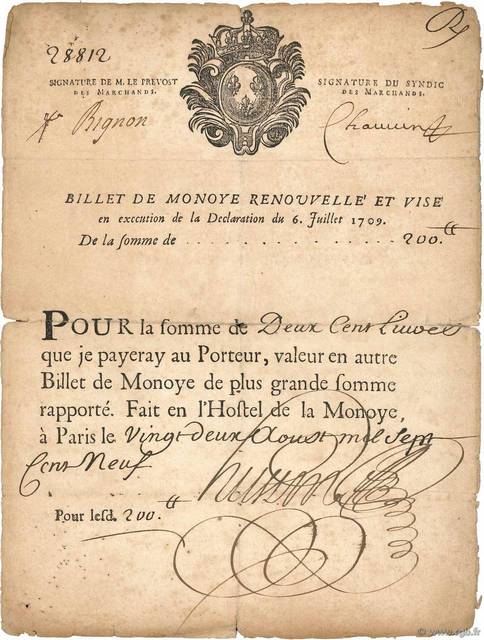 28812
SIGNATURE DE M. LE PREVOST
DES MARCHANDS.
Bignon
SIGNATURE DU SYNDIC
DES MARCHANDS.
BILLET DE MONOYE RENOUVELLÉ ET VISÉ
en execution de la Declaration du 6. Juillet 1709.
De la somme de . . . . . . . . . . . . . . . 200.
POUR la somme de Deux Cent Livres
que je payeray au Porteur, valeur en autre
Billet de Monoye de plus grande somme
rapporté. Fait en l'Hostel de la Monoye,
à Paris le Vingt deux Aoust mil sept
Cent Neuf
Pour lesd. 200.
© www.cgb.fr